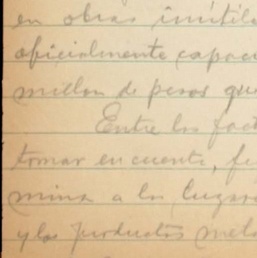 en obras inútile
oficialmente capac
millon de pesos que
Entre los fact
tomar en cuenta, fi
mina a los lugar
y los productos meta